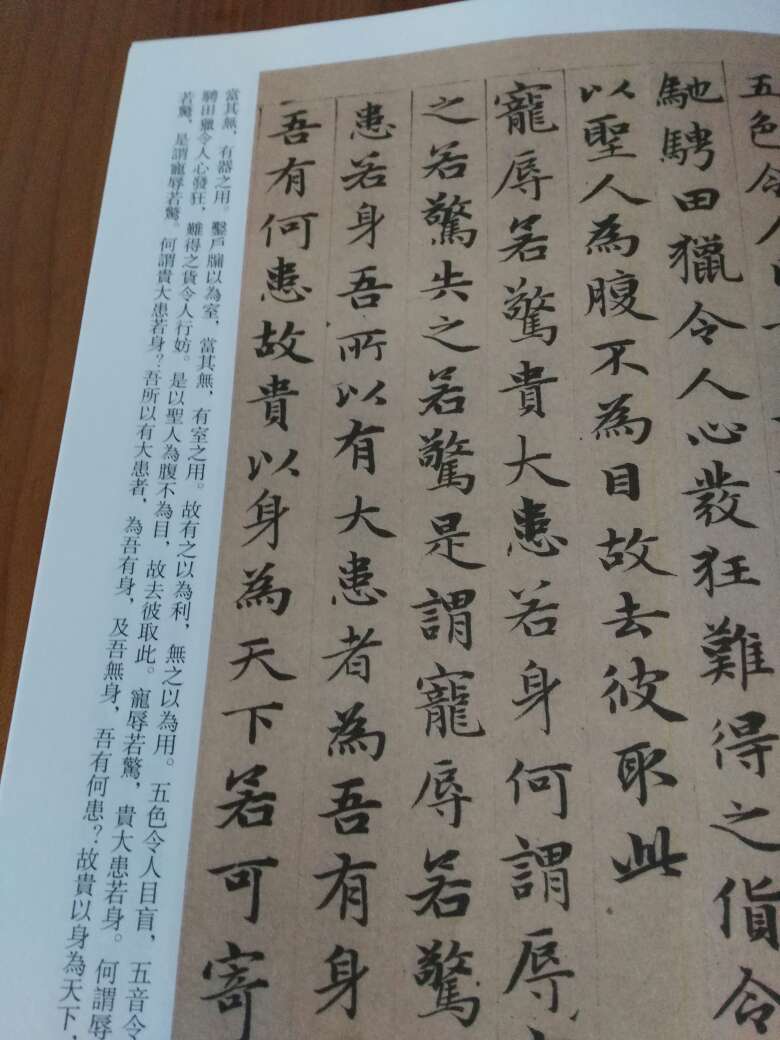 五色令人
馳騁田獵令人心發狂難得之貨令
以聖人為腹不為目故去彼取此
寵辱若驚貴大患若身何謂辱
之若驚失之若驚是謂寵辱若驚
患若身吾所以有大患者為吾有身
吾有何患故貴以身為天下若可寄
當其無，有器之用。鑿戶牖以為室，當其無，有室之用。故有之以為利，無之以為用。五色令人目盲，五音令
騁田獵令人心發狂，難得之貨令人行妨。是以聖人為腹不為目，故去彼取此。寵辱若驚，貴大患若身。何謂辱
若驚，是謂寵辱若驚。何謂貴大患若身？吾所以有大患者，為吾有身，及吾無身，吾有何患？故貴以身為天下，